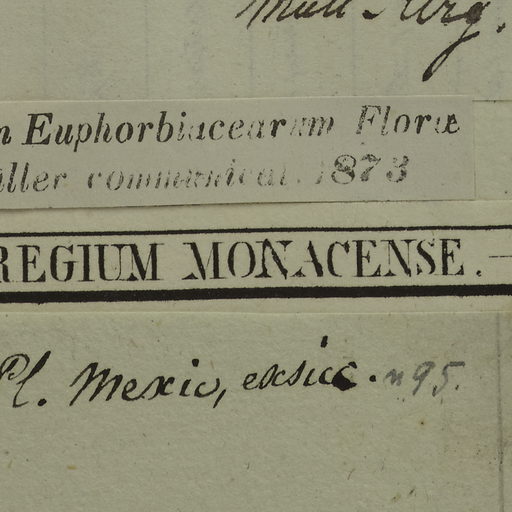 Müll-Arg.
n Euphorbiacearum Floræ
üller communicat. 1873
REGIUM MONACENSE.
Pl. Mexic, exsicc. n 95.